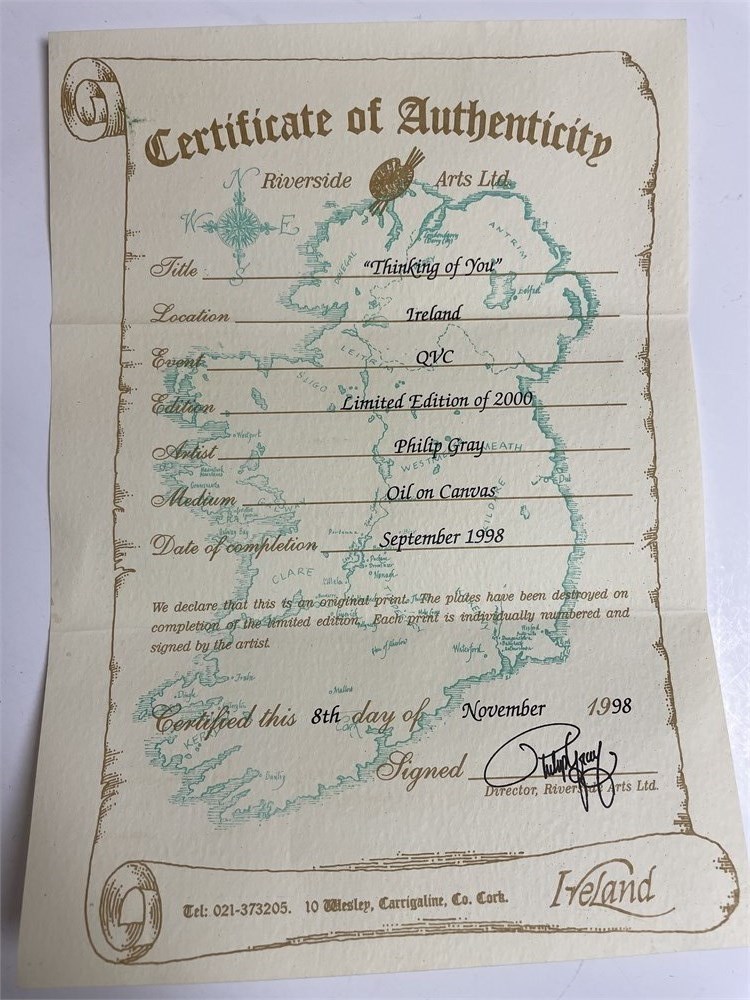 Certificate of Authenticity
Riverside Arts Ltd.
N
W E
S
Title "Thinking of You"
Location Ireland
Event QVC
Edition Limited Edition of 2000
Artist Philip Gray
Medium Oil on Canvas
Date of completion September 1998
We declare that this is an original print. The plates have been destroyed on
completion of the limited edition. Each print is individually numbered and
signed by the artist.
Certified this 8th day of November 1998
Signed Philip Gray
Director, Riverside Arts Ltd.
Tel: 021-373205. 10 Wesley, Carrigaline, Co. Cork.
Ireland
DONEGAL
ANTRIM
Belfast
LEITRIM
SLIGO
Westport
WESTMEATH
KILDARE
CLARE
Nenagh
Waterford
Wexford
Tralee
Dingle
Mallow
KERRY
Bantry